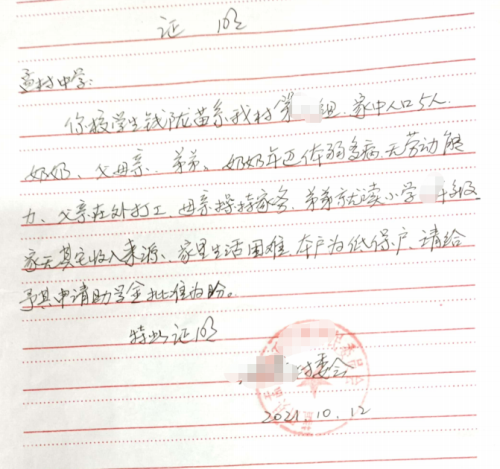 证 明
中学:
你校学生钱陇苗系我村第 组,家中人口5人,
奶奶、父母亲、弟弟、奶奶年迈体弱多病,无劳动能
力、父亲在外打工,母亲操持家务,弟弟就读小学 年级
家无其它收入来源、家里生活困难,本户为低保户,请给
予其申请助学金批准为盼。
特此证明
村委会
2021.10.12